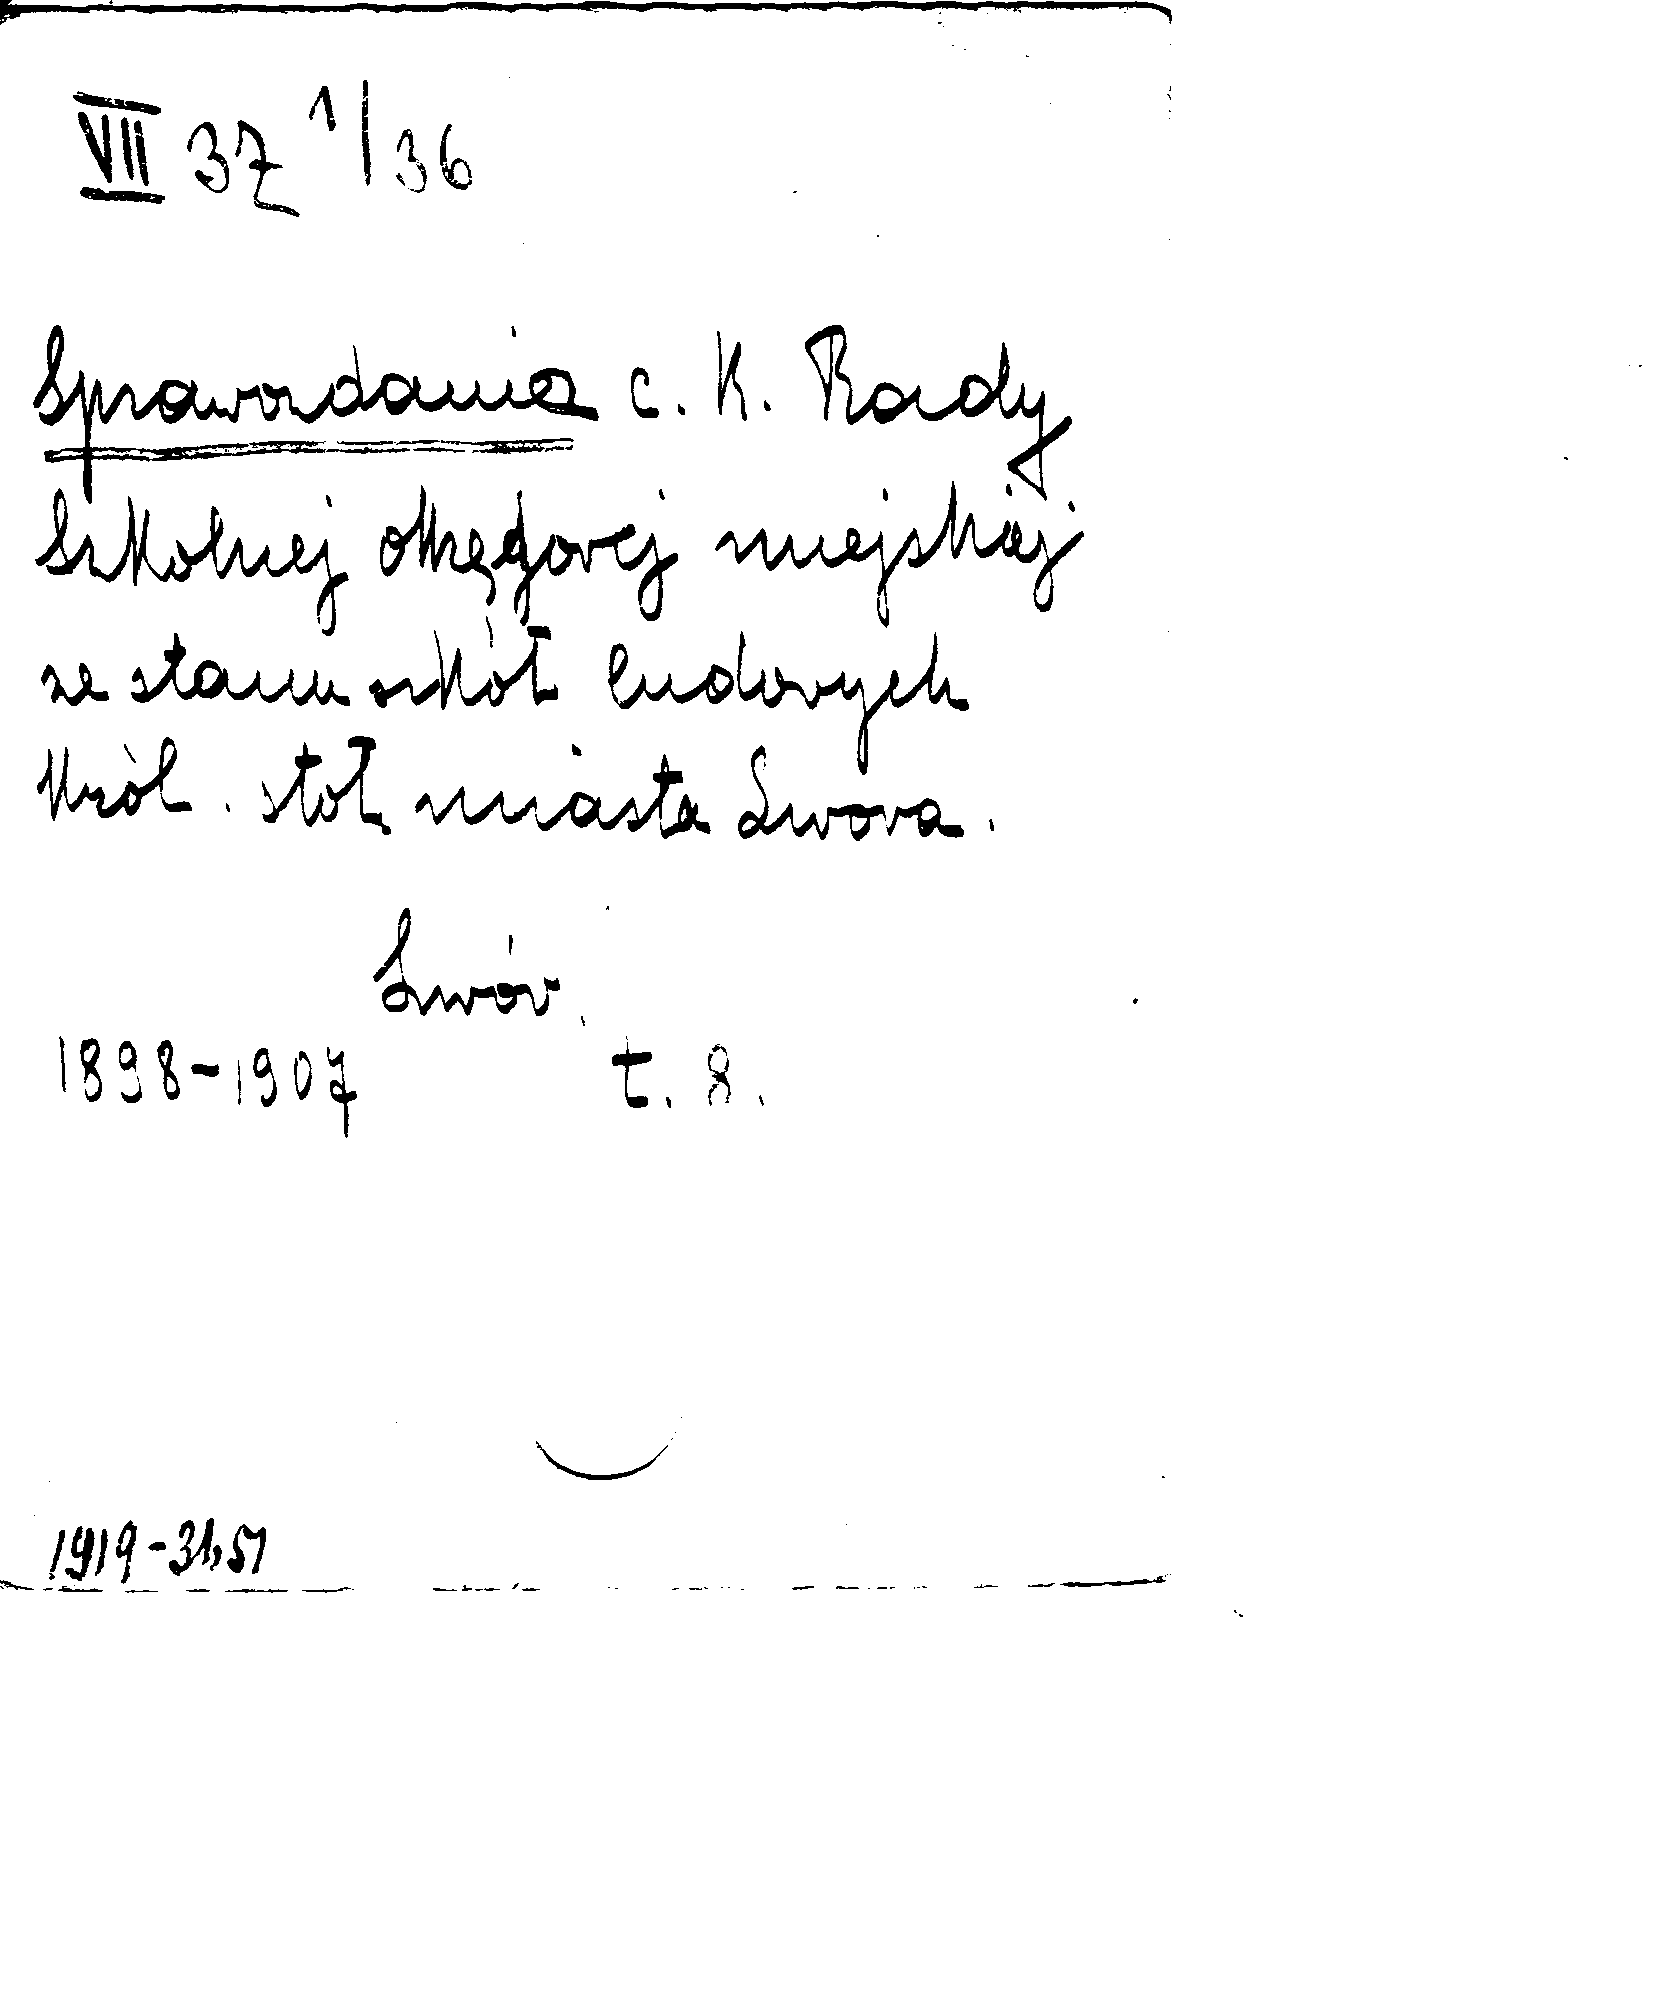 VII 37 1/36
Sprawozdania c. K. Rady
Szkolnej okręgowej miejskiej
ze stanu szkół ludowych
Król. stoł. miasta Lwowa.
Lwów.
1898-1907 t. 8.
1919-31,51